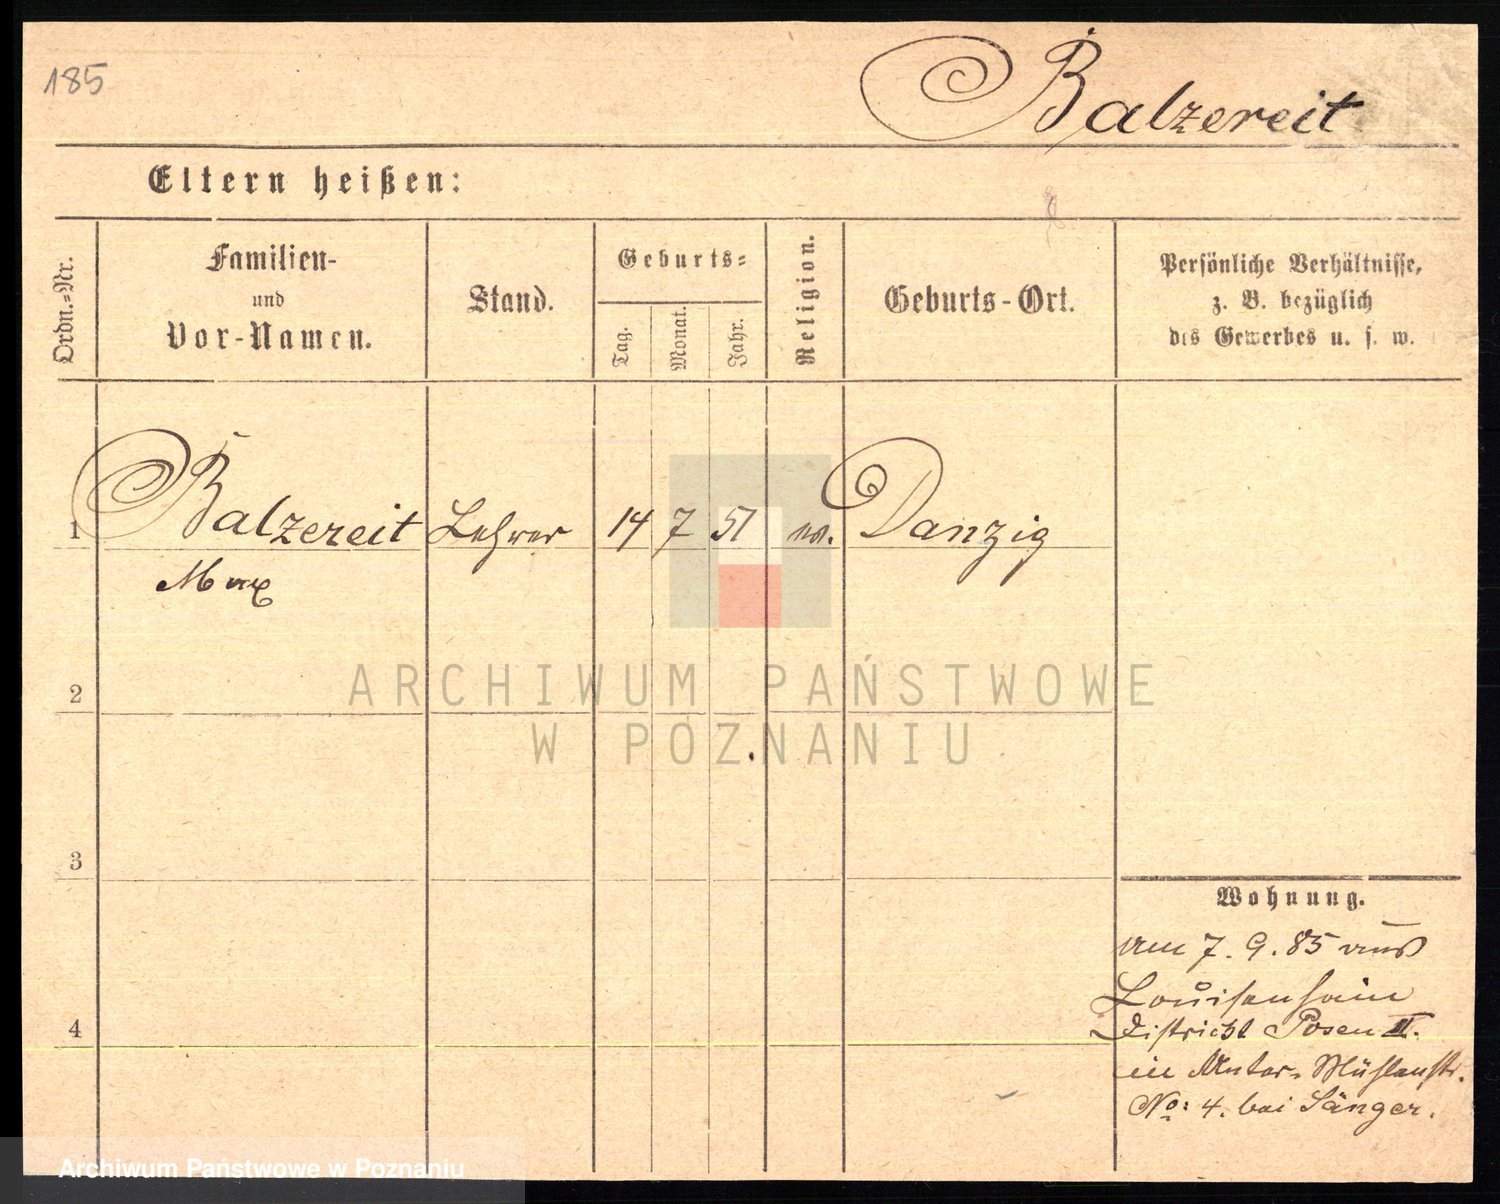 185
Balzereit
Eltern heißen:
Ordn.=Nr.
Familien-
und
Vor-Namen.
Stand.
Geburts=
Tag.
Monat.
Jahr.
Religion.
Geburts-Ort.
Persönliche Verhältnisse,
z. B. bezüglich
des Gewerbes u. s. w.
1
Balzereit
Max
Lehrer
14
7
51
ev.
Danzig
2
ARCHIWUM PAŃSTWOWE
W POZNANIU
3
4
Wohnung.
7. 9. 85 aus
Louisenhain
District Posen II.
in Unter-Mühlenstr.
No: 4. bei Sänger.
Archiwum Państwowe w Poznaniu